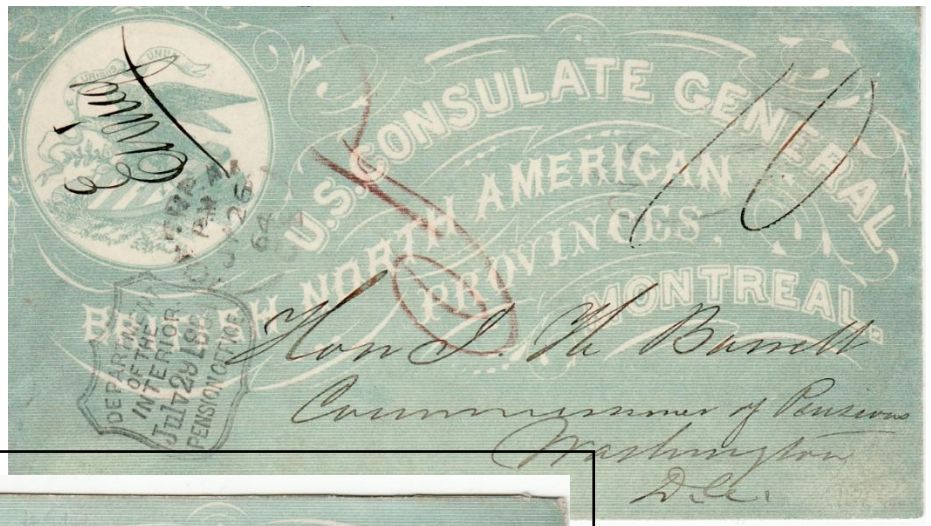 E PLURIBUS UNUM
Paid
U.S. CONSULATE GENERAL,
BRITISH NORTH AMERICAN
PROVINCES,
MONTREAL.
10
PM
JY 26
64
DEPARTMENT
OF THE
INTERIOR
July 29 186
PENSION OFFICE
Hon J. H. Barrett
Commissioner of Pensions
Washington
D.C.